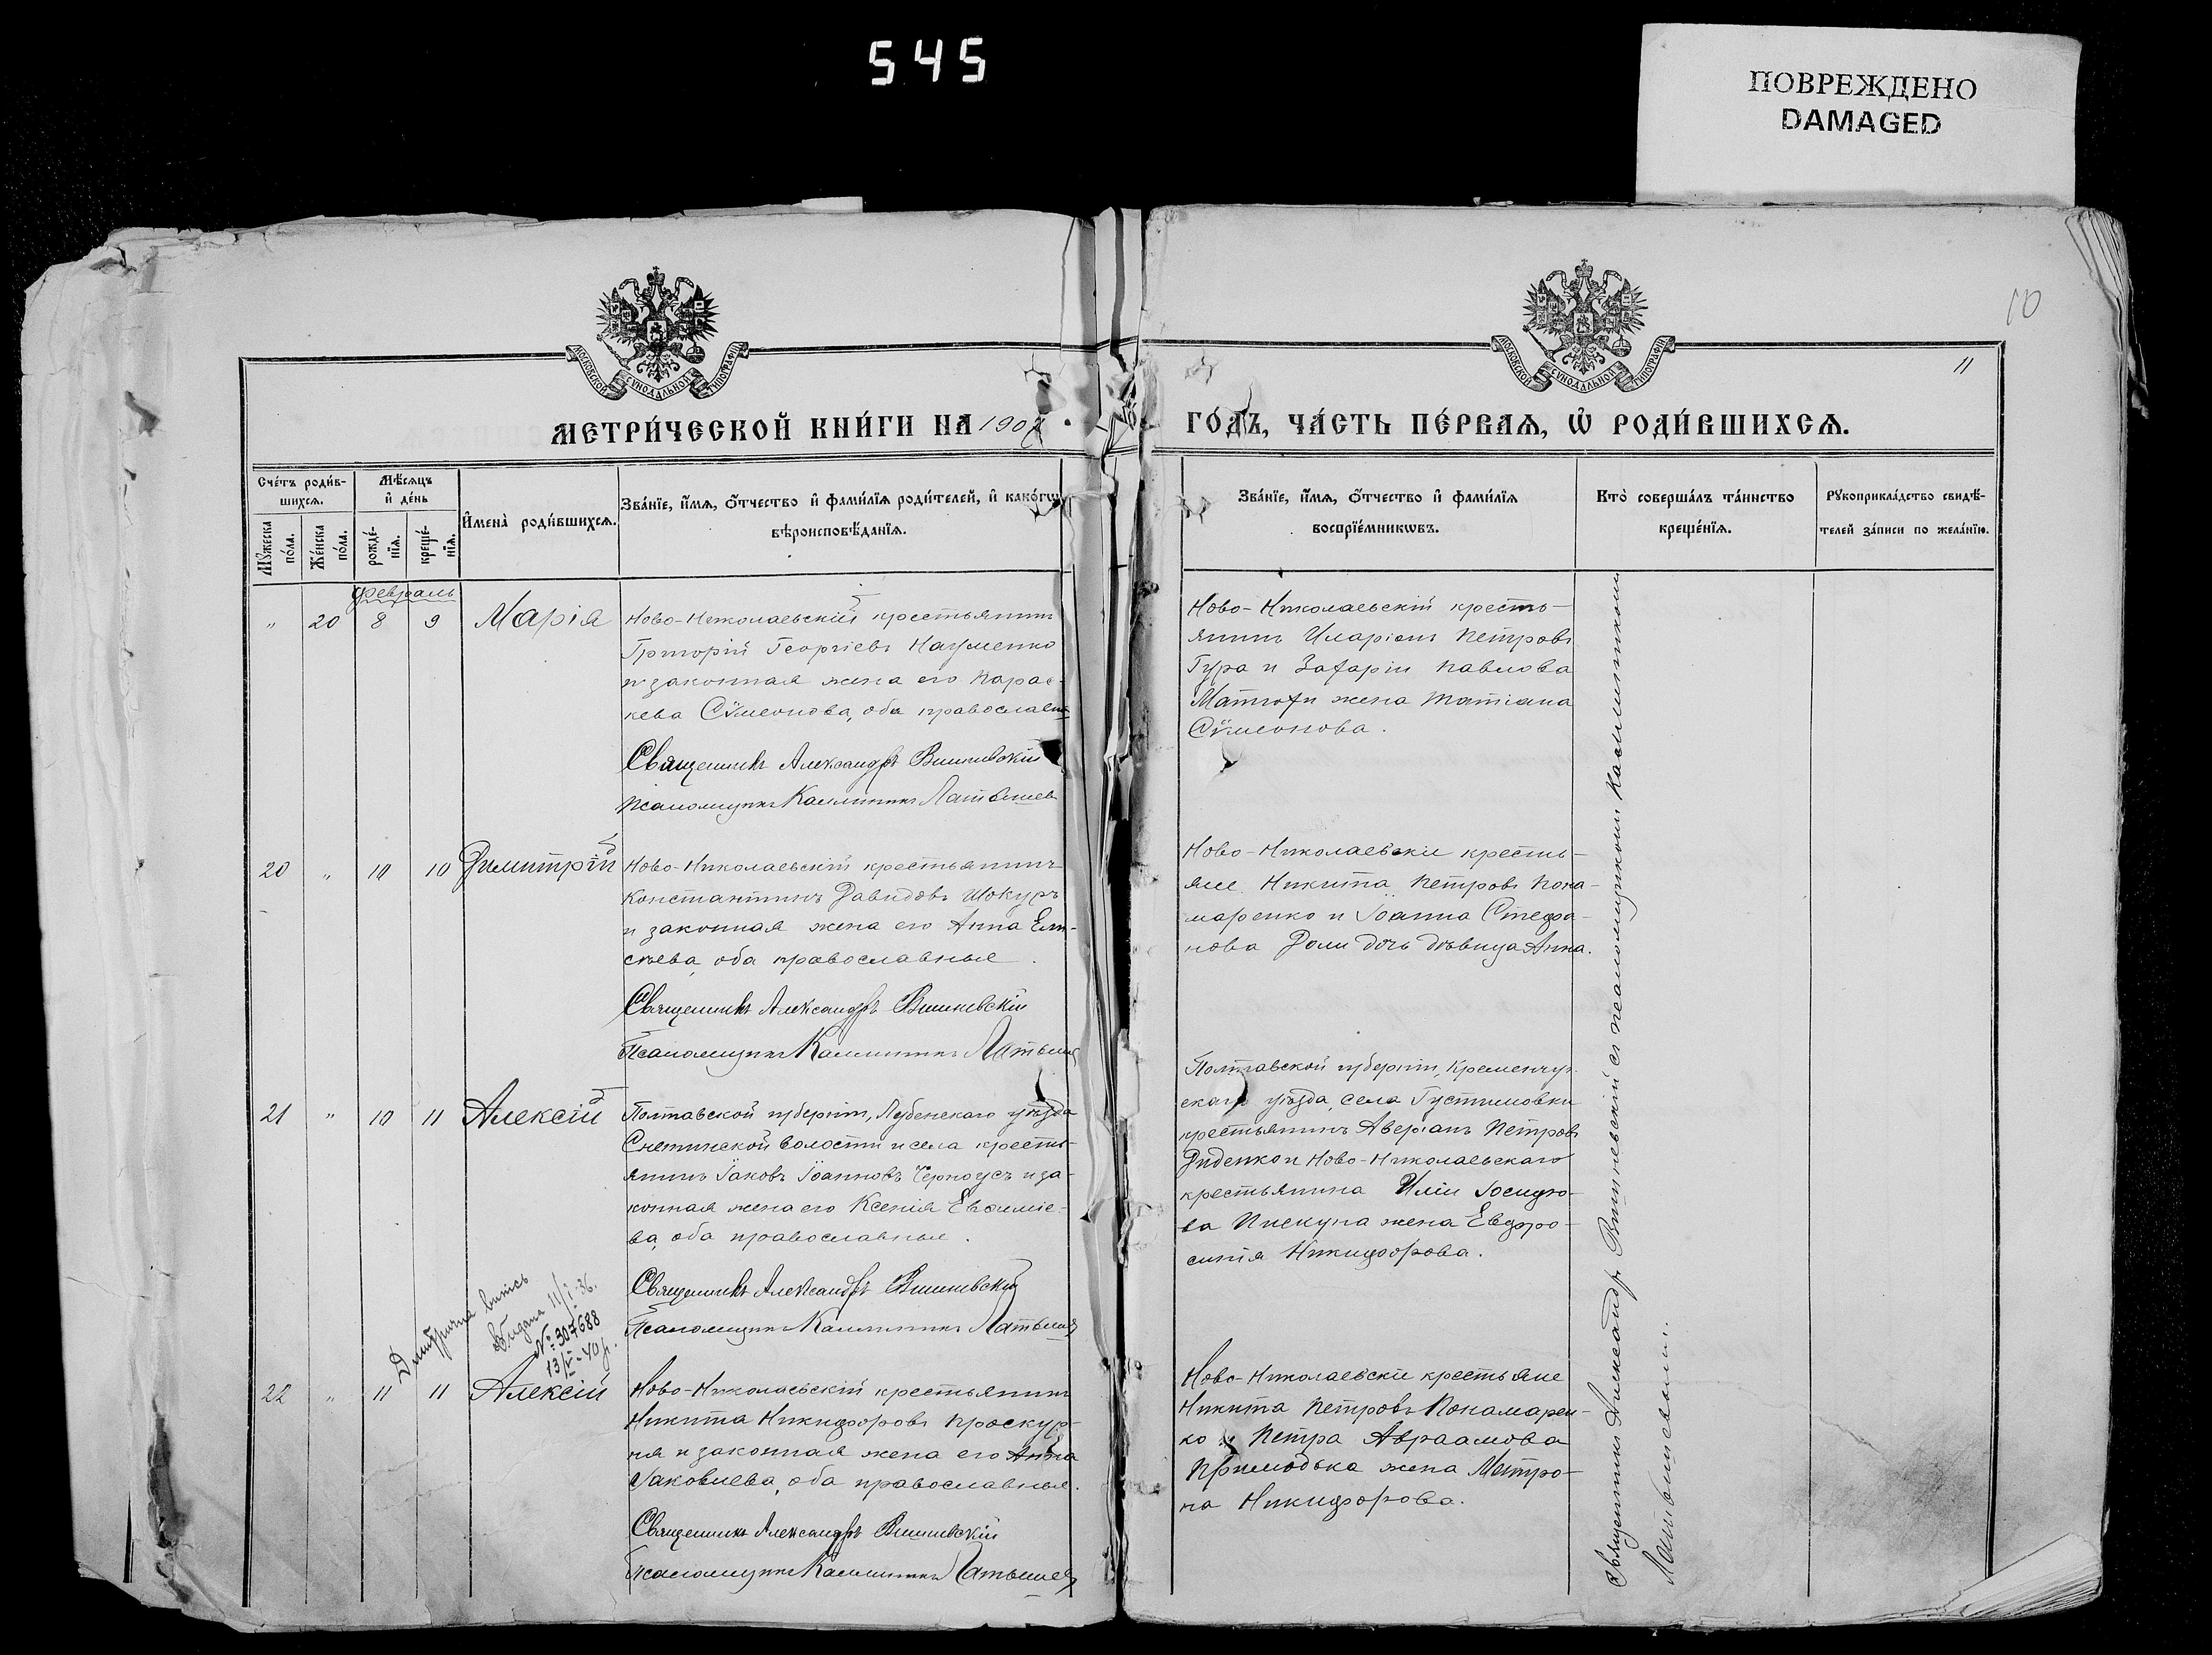 545
ПОВРЕЖДЕНО
DAMAGED
10
11
МОСКОВСКОЙ СУНОДАЛЬНОЙ ТИПОГРАФІИ
МОСКОВСКОЙ СУНОДАЛЬНОЙ ТИПОГРАФІИ
МЕТРИ́ЧЕСКОЙ КНИ́ГИ НА 1907 ГО́ДЪ, ЧА́СТЬ ПЕ́РВАѦ, Ѽ РОДИ́ВШИХСѦ.
Сче́тъ роди́в-
шихсѧ.
Мѣ́сѧцъ
и҆ де́нь
Мꙋ́жеска
по́ла.
Же́нска
по́ла.
рожде́-
нїѧ.
креще́-
нїѧ.
И҆мена̀ роди́вшихсѧ.
Зва́нїе, и҆́мѧ, ѻ҆́тчество и҆ фами́лїѧ роди́телей, и҆ како́гѡ
вѣроисповѣ́данїѧ.
Зва́нїе, и҆́мѧ, ѻ҆́тчество и҆ фами́лїѧ
воспрїе́мникѡвъ.
Кто̀ соверша́лъ та́инство
креще́нїѧ.
Рꙋкоприкла́дство свидѣ́-
телей за́писи по жела́нїю.
Февраль
" 20 8 9 Марія
Ново-Николаевскій крестьянинъ
Григорій Георгіевъ Науменко
и законная жена его Парас-
кева Сѵмеонова, оба православн.
Священникъ Александръ Вишневскій
Псаломщикъ Каллиникъ Латышев
Ново-Николаевскій кресть-
янинъ Иларіонъ Петровъ
Гура и Захаріи Павлова
Матюхи жена Татіана
Сѵмеонова.
20 " 10 10 Димитрій
Ново-Николаевскій крестьянинъ
Константинъ Давидовъ Шокуръ
и законная жена его Анна Ели-
сѣева, оба православные.
Священникъ Александръ Вишневскій
Псаломщикъ Каллиникъ Латышев
Ново-Николаевскіе кресть-
яне Никита Петровъ Пона-
маренко и Іоанна Стефа-
нова Доли дочь дѣвица Анна.
21 " 10 11 Алексій
Полтавской губерніи, Лубенскаго уѣзда
Снетинской волости и села кресть-
янинъ Іаковъ Іоанновъ Черноусъ и за-
конная жена его Ксенія Евѳиміе-
ва, оба православные.
Священникъ Александръ Вишневскій
Псаломщикъ Каллиникъ Латышев
Полтавской губерніи, Кременчуг-
скаго уѣзда, села Густимовки
крестьянинъ Аверіанъ Петровъ
Диденко и Ново-Николаевскаго
крестьянина Иліи Іосифо-
ва Пискуна жена Евфро-
синія Никифорова.
выпись
Видана 11/I-36.
№ 307688
13/V-40 р.
22 " 11 11 Алексій
Ново-Николаевскій крестьянинъ
Никита Никифоровъ Проскур-
ня и законная жена его Анна
Іаковлева, оба православные.
Священникъ Александръ Вишневскій
Псаломщикъ Каллиникъ Латышев
Ново-Николаевскіе крестьяне
Никита Петровъ Понамарен-
ко и Петра Авраамова
Примодька жена Матро-
на Никифорова.
Священникъ Александръ Вишневскій съ псаломщикомъ Каллиникомъ
Латышевымъ.